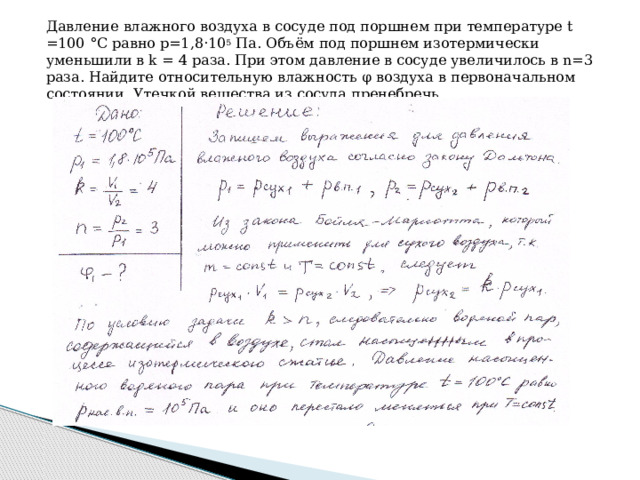 Давление влажного воздуха в сосуде под поршнем при температуре t
=100 °C равно p=1,8·10⁵ Па. Объём под поршнем изотермически
уменьшили в k = 4 раза. При этом давление в сосуде увеличилось в n=3
раза. Найдите относительную влажность φ воздуха в первоначальном
состоянии. Утечкой вещества из сосуда пренебречь
Дано:
t = 100°C
p₁ = 1,8·10⁵ Па
k = V₁/V₂ = 4
n = p₂/p₁ = 3
φ₁ – ?
Решение:
Запишем выражения для давления
влажного воздуха согласно закону Дальтона.
p₁ = pсух₁ + pв.п.₁ , p₂ = pсух₂ + pв.п.₂
Из закона Бойля–Мариотта, который
можно применить для сухого воздуха, т.к
m = const и T = const, следует
pсух₁ · V₁ = pсух₂ · V₂ , => pсух₂ = k·pсух₁.
По условию задачи k > n, следовательно водяной пар,
содержащийся в воздухе, стал насыщенным в про-
цессе изотермического сжатие. Давление насыщен-
ного водяного пара при температуре t = 100°C равно
pнас.в.п. = 10⁵ Па и оно перестало меняться при T=const.